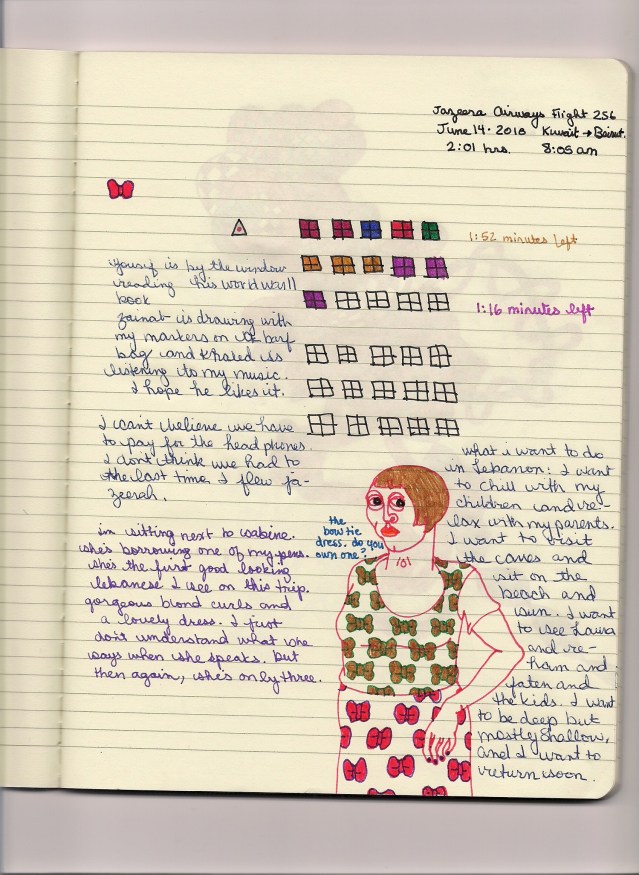 Jazeera Airways Flight 256
June 14 · 2010 Kuwait → Beirut.
2:01 hrs. 8:05 am
1:52 minutes left
1:16 minutes left
yousif is by the window
reading his world wall
book
zainab is drawing with
my markers on a barf
bag and khaled is
listening to my music.
I hope he likes it.
I can't believe we have
to pay for the headphones.
I don't think we had to
the last time I flew ja-
zeerah.
im sitting next to sabine.
she's borrowing one of my pens.
she's the first good looking
lebanese I see on this trip.
gorgeous blond curls and
a lovely dress. I just
don't understand what she
says when she speaks. but
then again, she's only three.
the
bow tie
dress. do you
own one?
what i want to do
in Lebanon: I want
to chill with my
children and re-
lax with my parents.
I want to visit
the caves and
sit on the
beach and
sun. I want
to see Laura
and re-
ham and
faten and
the kids. I want
to be deep but
mostly shallow,
and I want to
return soon.